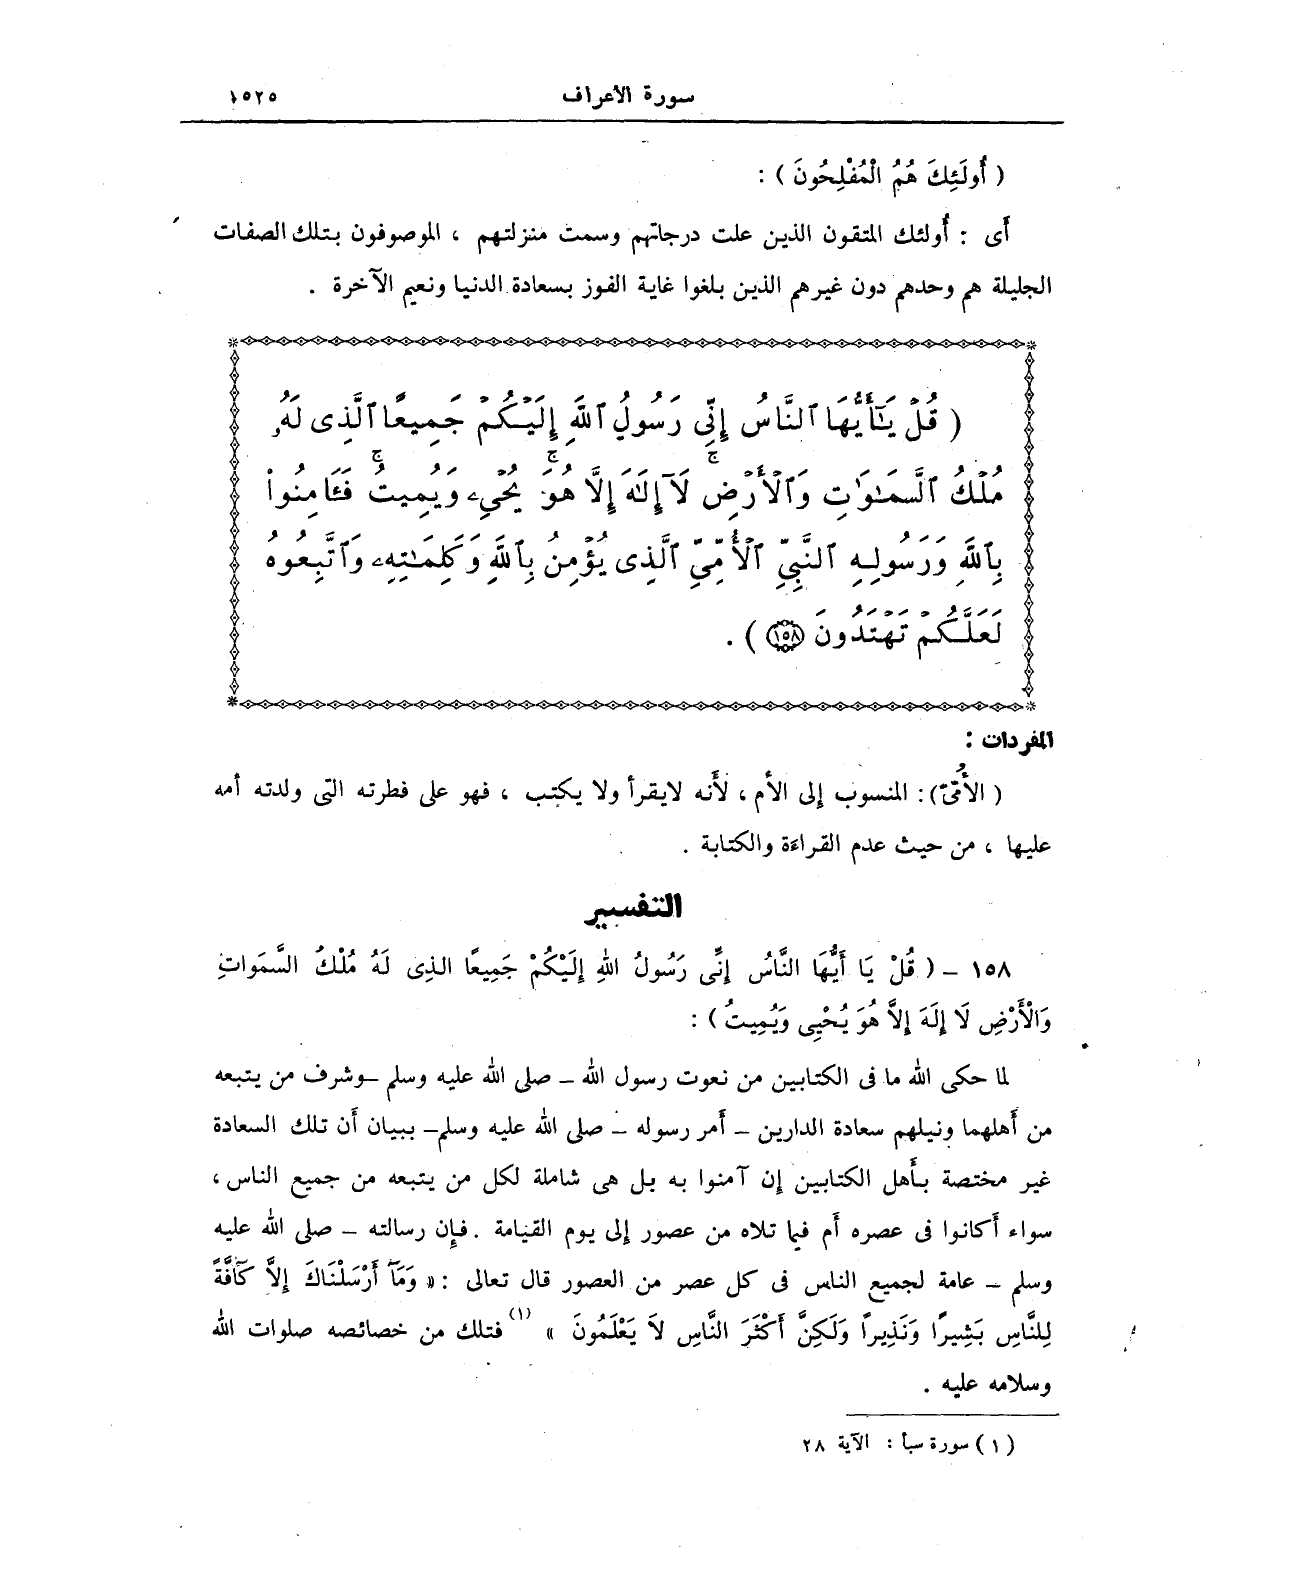 سورة الأعراف ١٥٢٥
( أُولَئِكَ هُمُ الْمُفْلِحُونَ ) :
أى : أُولئك المتقون الذين علت درجاتهم وسمت منزلتهم ، الموصوفون بتلك الصفات
الجليلة هم وحدهم دون غيرهم الذين بلغوا غاية الفوز بسعادة الدنيا ونعيم الآخرة .
( قُلْ يَـٰٓأَيُّهَا ٱلنَّاسُ إِنِّى رَسُولُ ٱللَّهِ إِلَيْكُمْ جَمِيعًا ٱلَّذِى لَهُۥ
مُلْكُ ٱلسَّمَـٰوَٰتِ وَٱلْأَرْضِ ۖ لَآ إِلَـٰهَ إِلَّا هُوَ يُحْىِۦ وَيُمِيتُ ۖ فَـَٔامِنُوا۟
بِٱللَّهِ وَرَسُولِهِ ٱلنَّبِىِّ ٱلْأُمِّىِّ ٱلَّذِى يُؤْمِنُ بِٱللَّهِ وَكَلِمَـٰتِهِۦ وَٱتَّبِعُوهُ
لَعَلَّكُمْ تَهْتَدُونَ ١٥٨ ) .
المفردات :
( الأُمِّىّ ) : المنسوب إلى الأم ، لأَنه لايقرأ ولا يكتب ، فهو على فطرته التى ولدته أمه
عليها ، من حيث عدم القراءة والكتابة .
التفسير
١٥٨ - ( قُلْ يَا أَيُّهَا النَّاسُ إِنِّى رَسُولُ اللهِ إِلَيْكُمْ جَمِيعًا الذِى لَهُ مُلْكُ السَّمَواتِ
وَالْأَرْضِ لَا إِلَهَ إِلاَّ هُوَ يُحْيِى وَيُمِيتُ ) :
لما حكى الله ما فى الكتابين من نعوت رسول الله - صلى الله عليه وسلم - وشرف من يتبعه
من أَهلهما ونيلهم سعادة الدارين - أَمر رسوله - صلى الله عليه وسلم - ببيان أَن تلك السعادة
غير مختصة بأَهل الكتابين إِن آمنوا به بل هى شاملة لكل من يتبعه من جميع الناس ،
سواء أَكانوا فى عصره أَم فيما تلاه من عصور إلى يوم القيامة . فإِن رسالته - صلى الله عليه
وسلم - عامة لجميع الناس فى كل عصر من العصور قال تعالى : « وَمَآ أَرْسَلْنَاكَ إِلاَّ كَآفَّةً
لِلنَّاسِ بَشِيرًا وَنَذِيراً وَلَكِنَّ أَكْثَرَ النَّاسِ لاَ يَعْلَمُونَ » (١) فتلك من خصائصه صلوات الله
وسلامه عليه .
(١) سورة سبأ : الآية ٢٨